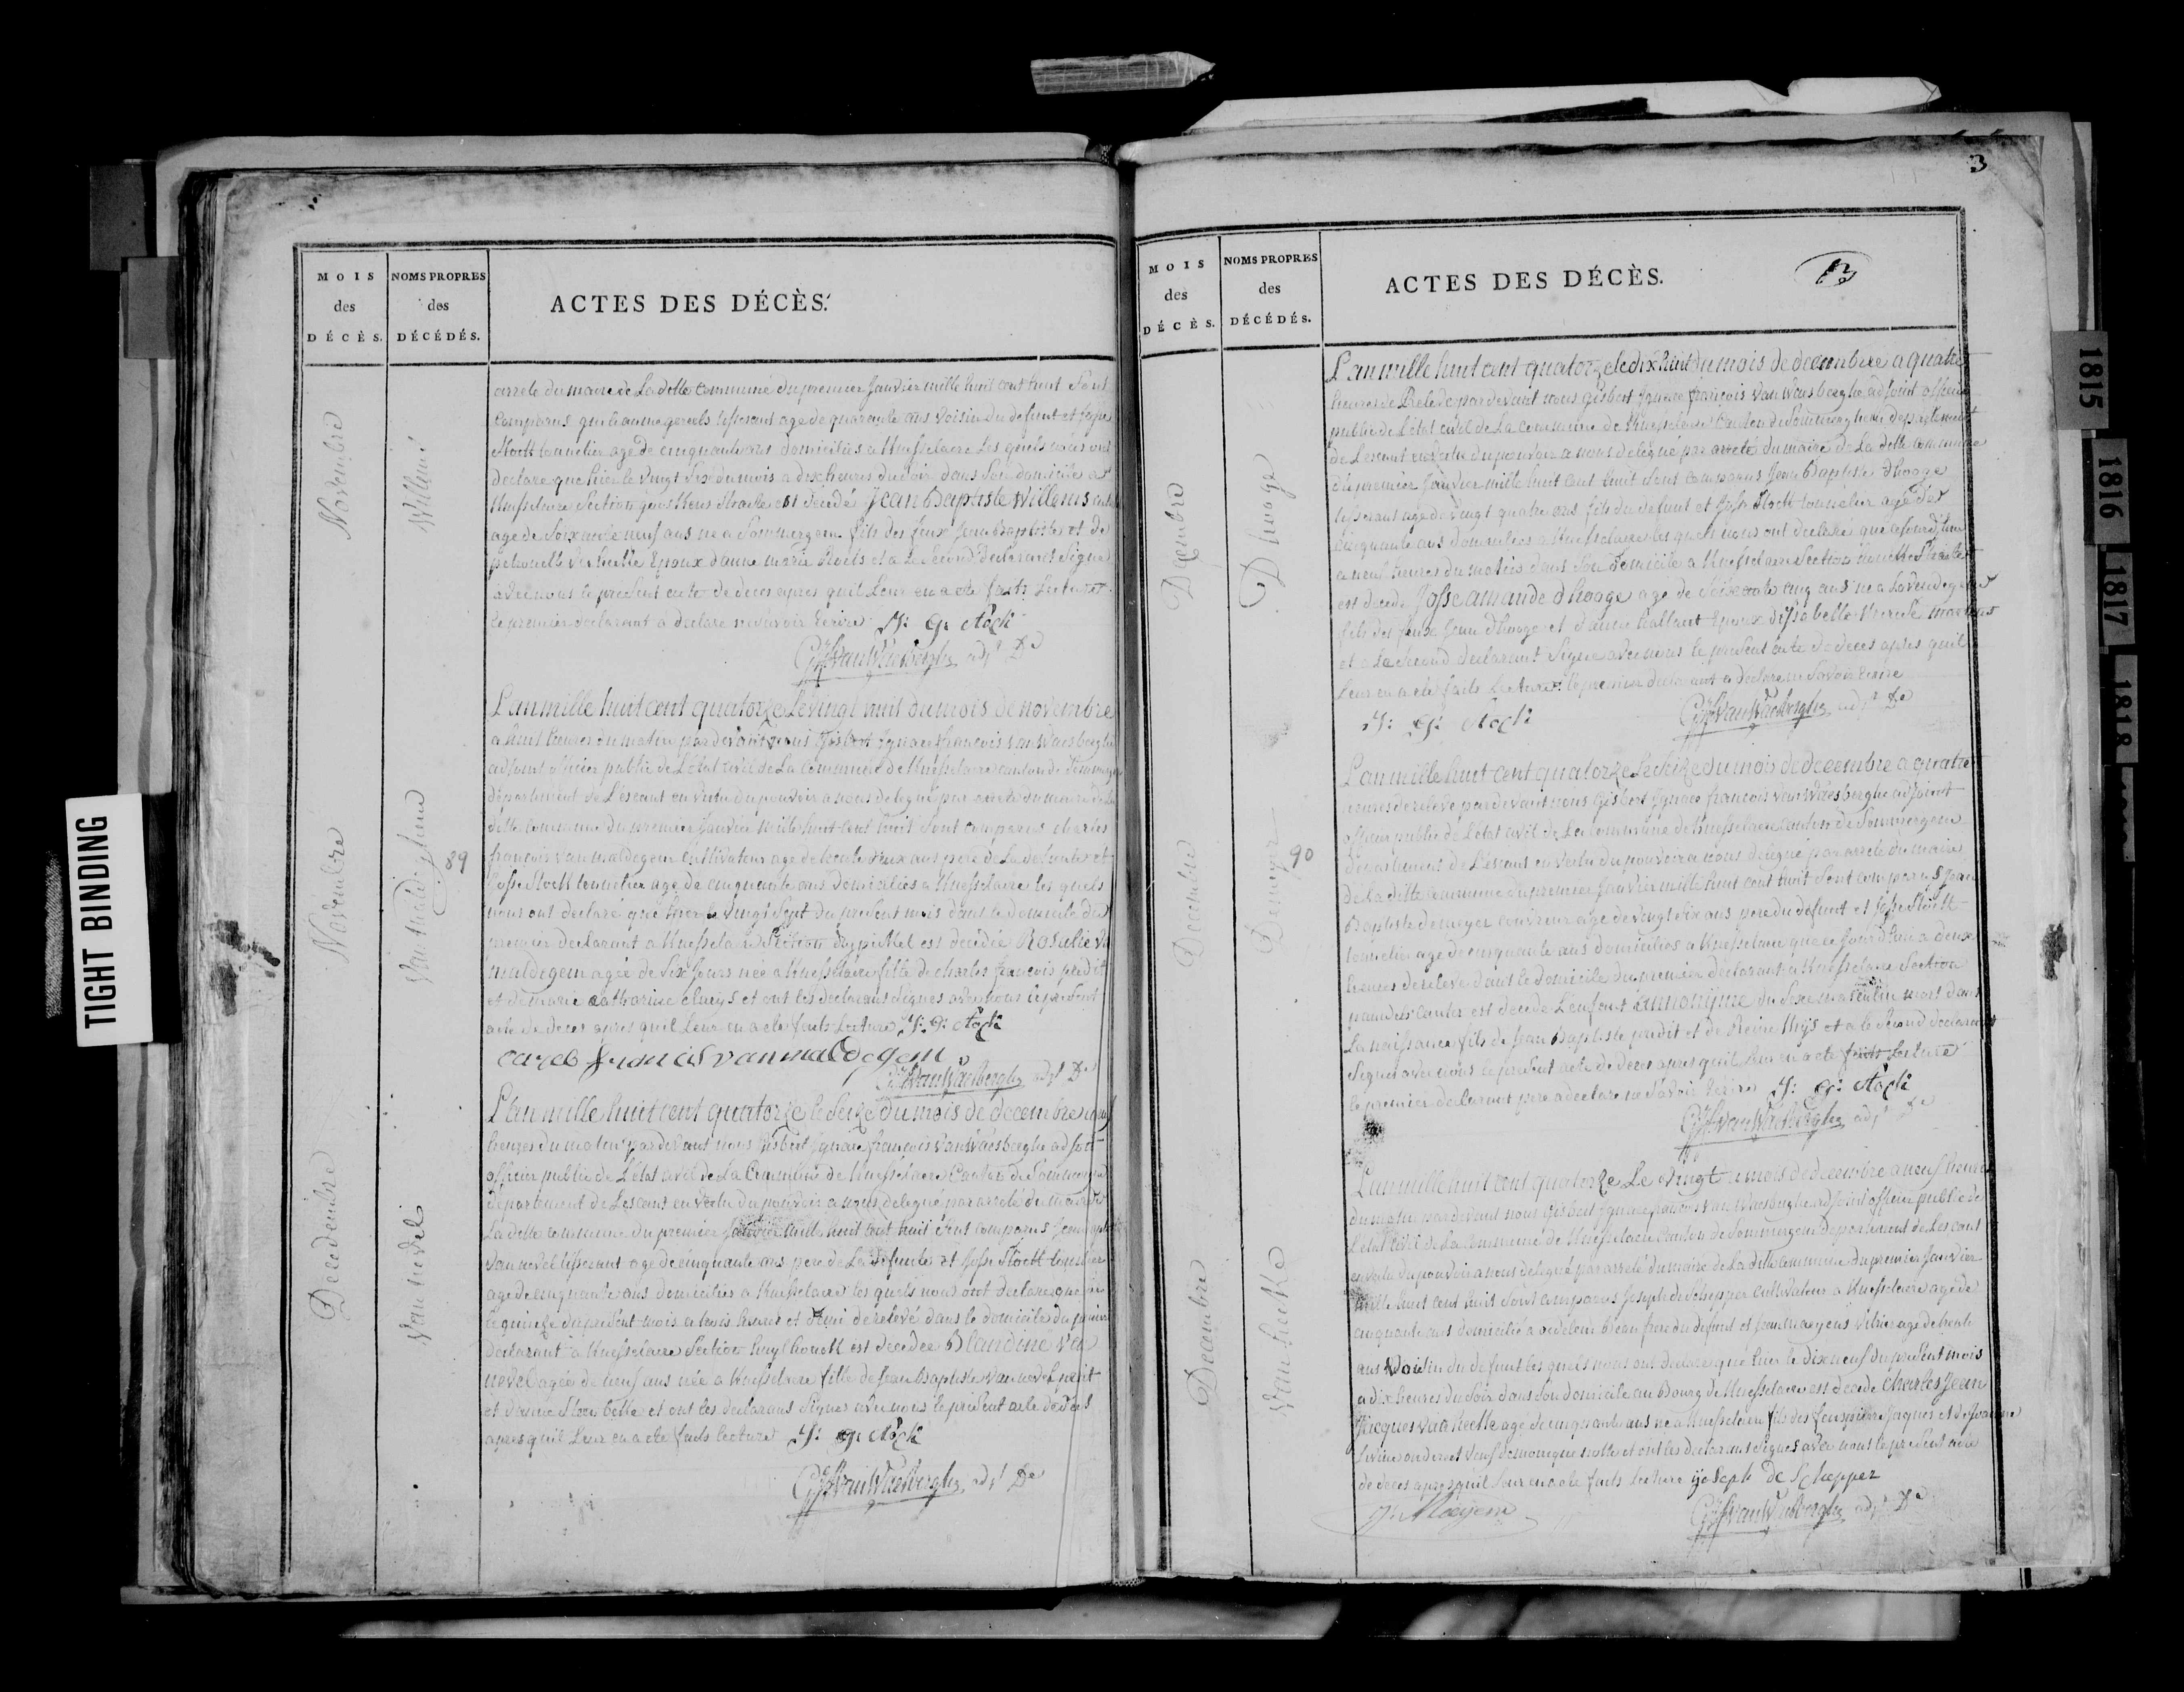 TIGHT BINDING
MOIS
des
DÉCÈS.
NOMS PROPRES
des
DÉCÉDÉS.
ACTES DES DÉCÈS.
Novembre
Willems
arrete du maire de La ditte Commune du premier Janvier mille huit cent huit Sont
Comparus age de quarante ans voisin du defunt et Josse
Stock tonnelier age de cinquante ans domiciliés a Knesselaere Les quels nous ont
declare que hier le vingt Six du mois a dix heures du Soir dans Son domicile a
Knesselaere Section est decedé Jean Baptiste Willems
age de Soixante neuf ans né a Sommergem fils des feux Jean Baptiste et de
petronelle Epoux d'anne marie Roels et a Le Second declarant Signé
avec nous le present acte de deces apres quil Leur en a ete faite Lecture
le premier declarant a declaré ne Savoir Ecrire J: G: Stock
GJfvanWaesberghe adjt De
Novembre
Van maldeghem
89
L'an mille huit cent quatorze Le vingt huit du mois de novembre
a huit heures du matin pardevant nous Gisbert Ignace francois van Waesberghe
adjoint officier public de L'état civil de La Commune de Knesselaere canton de Sommergem
département de L'escaut en vertu du pouvoir a nous delegué par arrete du maire de la
ditte Commune du premier Janvier mille huit Cent huit Sont comparus charles
francois van maldegem Cultivateur age de trente deux ans pere de La defunte et
Josse Stock tonnelier age de cinquante ans Domiciliés a Knesselaere les quels
nous ont declaré que hier le vingt Sept du present mois dans le domicile du
premier declarant a Knesselaere Section est decedée Rosalie van
maldegem agée de Six Jours née a Knesselaere fille de charles francois predit
et de marie catharine cluijs et ont les declarans Signes avec nous le present
acte de deces apres quil Leur en a ete faite Lecture J: G: Stock
carel francis van maldegem
GJfvanWaesberghe adjt De
Decedembre
Van nevel
L'an mille huit cent quatorze le Seize du mois de decembre a neuf
heures du matin pardevant nous Gisbert Ignace francois Van Waesberghe adjoint
officier public de L'état civil de La Commune de Knesselaere Canton de Sommergem
département de Lescaut en vertu du pouvoir a nous delegué par arreté du maire de
La ditte commune du premier Janvier mille huit cent huit Sont comparus Jean Baptiste
Van nevel tisserant age de cinquante ans pere de La defunte et Josse Stock tonnelier
age de cinquante ans domiciliés a Knesselaere les quels nous ont declaré que hier
le quinze du present mois a trois heures et demi de relevé dans le domicile du premier
declarant a Knesselaere Section est decedée Blandine Van
nevel agée de neuf ans née a Knesselaere fille de Jean Baptiste Van nevel predit
et d'anne et ont les declarans Signes avec nous le present acte de deces
apres quil Leur en a ete faite lecture J: G: Stock
GJfvanWaesberghe adjt De
3
MOIS
des
DÉCÈS.
NOMS PROPRES
des
DÉCÉDÉS.
ACTES DES DÉCÈS.
Decembre
Dhooge
L'an mille huit cent quatorze le dix huit du mois de decembre a quatre
heures de Relevé pardevant nous Gisbert Ignace francois Van Waesberghe adjoint officier
public de L'état civil de La commune de Knesselaere Canton de Sommergem departement
de Lescaut en vertu du pouvoir a nous delegué par arreté du maire de La ditte commune
du premier Janvier mille huit cent huit Sont comparus Jean Baptiste Dhooge
tisserant age de vingt quatre ans fils du defunt et Josse Stock tonnelier age de
cinquante ans domiciliés a Knesselaere les quels nous ont declaré que ce jourd'hui
a neuf heures du matin dans Son domicile a Knesselaere Section
est decedé Josse amande dhooge age de Soixante cinq ans né a Lovendegem
fils des feux Jean Dhooge et d'anne Epoux d'isabelle therese martens
et a Le Second declarant Signé avec nous le present acte de deces apres quil
Leur en a ete faite Lecture le premier declarant a declaré ne Savoir Ecrire
J: G: Stock
GJfvanWaesberghe adjt De
Decembre
Demeyer
90
L'an mille huit cent quatorze Le Seize du mois de decembre a quatre
heures de relevé pardevant nous Gisbert Ignace francois van Waesberghe adjoint
officier public de L'état civil de La commune de Knesselaere canton de Sommergem
departement de L'escaut en vertu du pouvoir a nous delegué par arrete du maire
de La ditte commune du premier Janvier mille huit cent huit Sont comparus Jean
Baptiste demeyer couvreur age de vingt Six ans pere du defunt et Josse Stock
tonnelier age de cinquante ans domiciliés a Knesselaere que ce Jourd'hui a deux
heures de relevé dans le domicile du premier declarant a Knesselaere Section
est decedé L'enfant annonijme du Sexe masculin mort dans
La naissance fils de Jean Baptiste predit et de Reine thijs et a le Second declarant
Signé avec nous le present acte de deces apres quil Leur en a ete faite Lecture
le premier declarant pere a declare ne Savoir Ecrire J: G: Stock
GJfvanWaesberghe adjt De
Decembre
Van hecke
L'an mille huit cent quatorze Le vingt du mois de decembre a neuf heures
du matin pardevant nous Gisbert Ignace francois van Waesberghe adjoint officier public de
L'etat civil de La Commune de Knesselaere canton de Sommergem departement de Lescaut
en vertu du pouvoir a nous delegué par arreté du maire de La ditte commune du premier Janvier
mille huit cent huit Sont comparus Joseph de Schepper cultivateur a Knesselaere age de
cinquante ans domicilié a oedelem beau frere du defunt et Jean maeyens vitrier age de trente
ans Voisin du defunt les quels nous ont declaré que hier le dix neuf du present mois
a dix heures du Soir dans Son domicile au Bourg de Knesselaere est decedé Charles Jean
Jacques van hecke age de cinquante ans né a Knesselaere fils des feux Jaques et de Joanne
Livine et ont les declarans Signes avec nous le present acte
de deces apres quil Leur en a ete faite Lecture ijoseph de Schepper
J: Maeyens
GJfvanWaesberghe adjt De
1815
1816
1817
1818